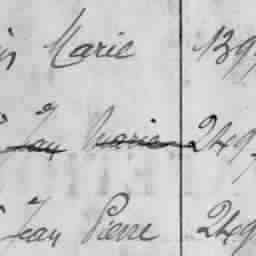 Marie 139
Jean Marie 249
Jean Pierre 249